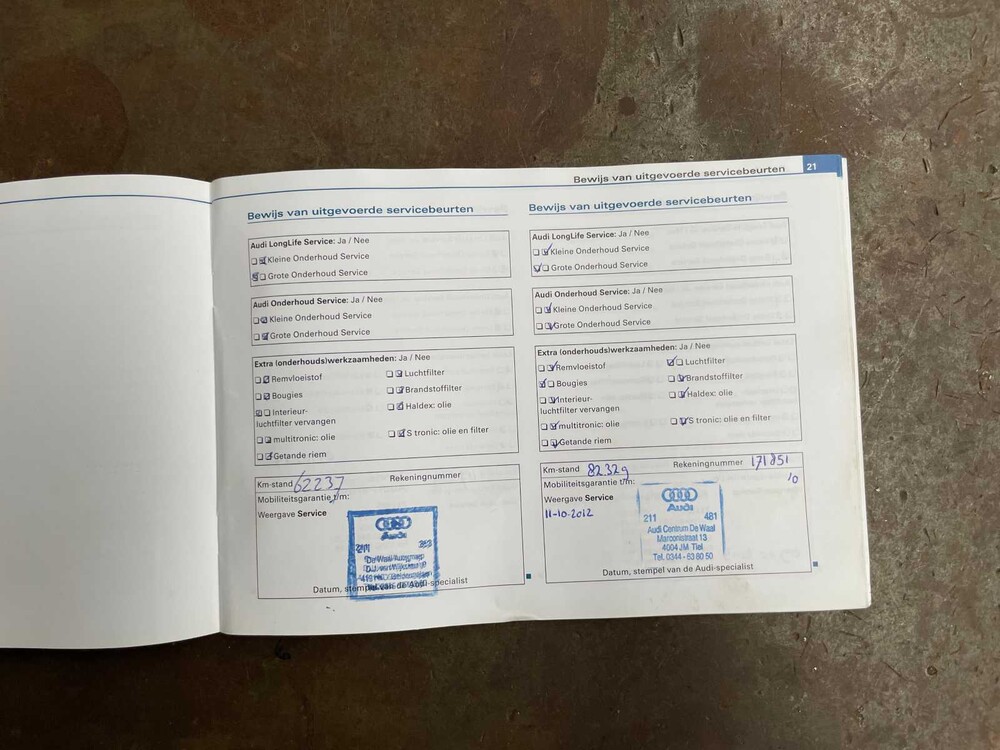 Bewijs van uitgevoerde servicebeurten 21
Bewijs van uitgevoerde servicebeurten
Audi LongLife Service: Ja / Nee
Kleine Onderhoud Service
Grote Onderhoud Service
Audi Onderhoud Service: Ja / Nee
Kleine Onderhoud Service
Grote Onderhoud Service
Extra (onderhouds)werkzaamheden: Ja / Nee
Remvloeistof
Luchtfilter
Bougies
Brandstoffilter
Interieur-
luchtfilter vervangen
Haldex: olie
multitronic: olie
S tronic: olie en filter
Getande riem
Km-stand 62237 Rekeningnummer
Mobiliteitsgarantie t/m:
Weergave Service
Audi
Datum, stempel van de Audi-specialist
Bewijs van uitgevoerde servicebeurten
Audi LongLife Service: Ja / Nee
Kleine Onderhoud Service
Grote Onderhoud Service
Audi Onderhoud Service: Ja / Nee
Kleine Onderhoud Service
Grote Onderhoud Service
Extra (onderhouds)werkzaamheden: Ja / Nee
Remvloeistof
Luchtfilter
Bougies
Brandstoffilter
Interieur-
luchtfilter vervangen
Haldex: olie
multitronic: olie
S tronic: olie en filter
Getande riem
Km-stand 82329 Rekeningnummer 171851
Mobiliteitsgarantie t/m: 10
Weergave Service
11-10-2012
Audi
211 481
Audi Centrum De Waal
Marconistraat 13
4004 JM Tiel
Tel. 0344 - 63 80 50
Datum, stempel van de Audi-specialist